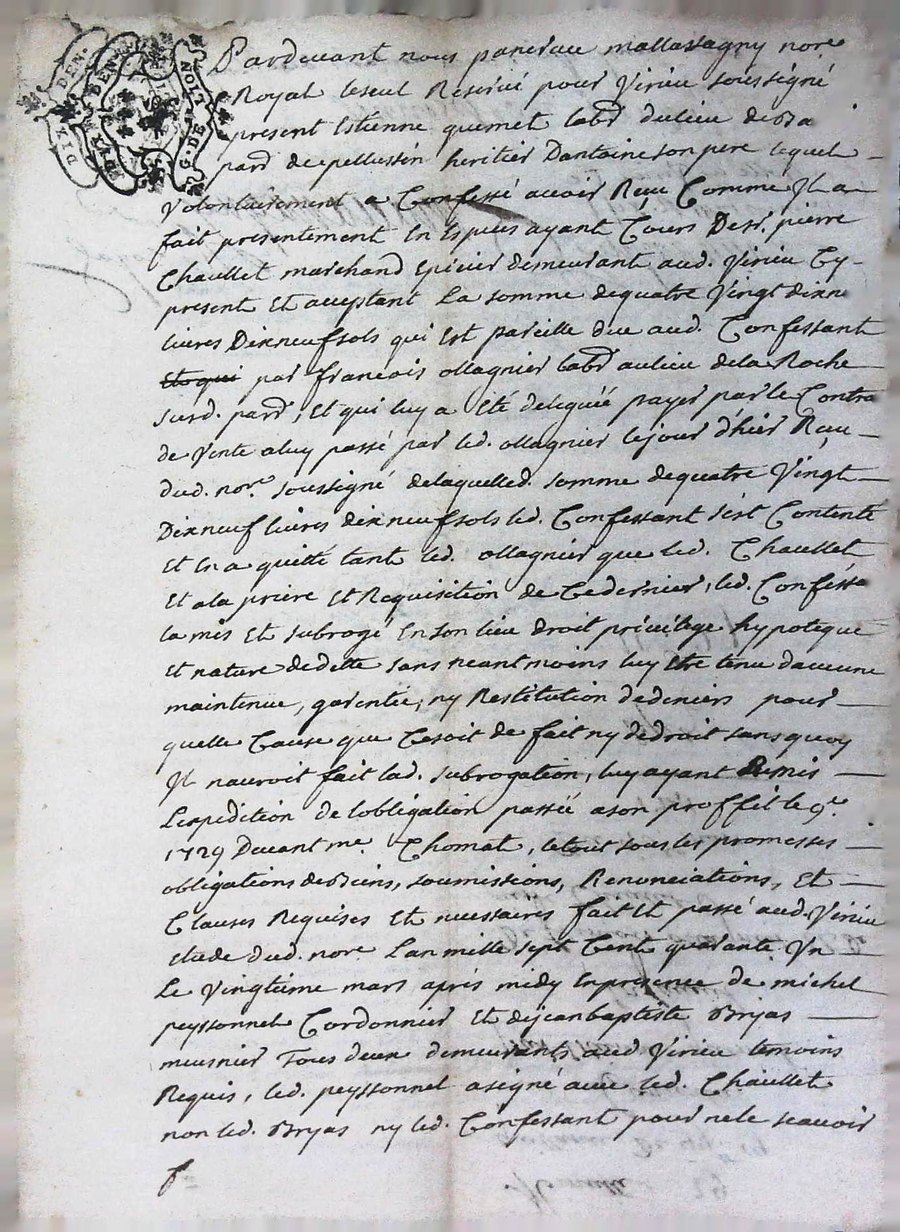 DIX DEN. G. DE LION
Pardevant nous pancrace mallassagny nore
Royal le seul Reservé pour Virieu soussigné
present Estienne quemet labr du lieu de
pard de pellussin heritier Dantoine son pere lequel
volontairement a Confessé avoir Reçu Comme Il a
fait presentement En Espèces ayant Cours De sr. pierre
Chaullet marchand epicier demeurant aud. Virieu Cy-
present Et acceptant La somme de quatre Vingt dixne
livres Dixneuf sols qui Est pareille due aud. Confessant
par francois ollagnier labr au lieu de la Roche
surd. pard, Et qui luy a Eté deleguée payer par le Contra
de Vente a luy passé par led. ollagnier le jour d'hier Reçu
dud. nore. soussigné de laquelled. somme de quatre Vingt
Dixneuf livres dixneuf sols led. Confessant s'est Contenté
Et En a quitté tant led. ollagnier que led. Chaullet
Et a la priere Et Requisition de Ce dernier, led. Confessa
la mis Et subrogé En son lieu droit privilege hypoteque
Et nature de dette sans neantmoins luy Etre tenu daucune
maintenue, garentie, ny Restitution de deniers pour
quelle Cause que Ce soit de fait ny de droit sans quoy
Il nauroit fait lad. subrogation, luy ayant Remis
Lexpedition de lobligation passée a son proffit le 9r.
1729 Devant me. Thomat, le tout sous les promesses
obligations de Biens, soumissions, Renonciations, Et
Clauses Requises Et necessaires fait Et passé aud. Virieu
etude dud. nore. Lan mille sept Cent quarante Un
Le Vingtième mars aprés midy En presence de michel
peyssonnel Cordonnier Et de jean baptiste Bryas
meusnier Tous deux demeurants aud Virieu temoins
Requis, led. peyssonnel a signé avec led. Chaullet
non led. Bryas ny led. Confessant pour ne le scavoir